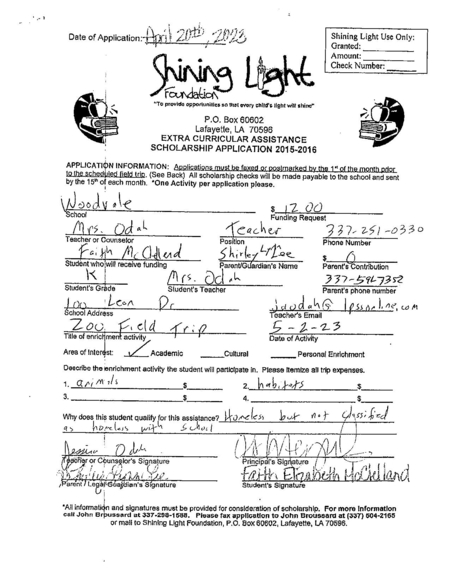 Date of Application: April 20th, 2023
Shining Light Use Only:
Granted:
Amount:
Check Number:
Shining Light
Foundation
"To provide opportunities so that every child's light will shine"
P.O. Box 60602
Lafayette, LA 70596
EXTRA CURRICULAR ASSISTANCE
SCHOLARSHIP APPLICATION 2015-2016
APPLICATION INFORMATION: Applications must be faxed or postmarked by the 1st of the month prior
to the scheduled field trip. (See Back) All scholarship checks will be made payable to the school and sent
by the 15th of each month. *One Activity per application please.
Woodvale $ 12.00
School Funding Request
Mrs. Odah Teacher 337-251-0330
Teacher or Counselor Position Phone Number
Faith McClelland Shirley $
Student who will receive funding Parent/Guardian's Name Parent's Contribution
K Mrs. Odah 337-596-7352
Student's Grade Student's Teacher Parent's phone number
100 Leon Dr
School Address Teacher's Email
Zoo Field Trip 5-2-23
Title of enrichment activity Date of Activity
Area of Interest: ✓ Academic Cultural Personal Enrichment
Describe the enrichment activity the student will participate in. Please itemize all trip expenses.
1. animals $ 2. habitats $
3. $ 4. $
Why does this student qualify for this assistance? Homeless but not classified
as homeless with school
Teacher or Counselor's Signature Principal's Signature
Faith Elizabeth McClelland
Parent / Legal Guardian's Signature Student's Signature
*All information and signatures must be provided for consideration of scholarship. For more information
call John Broussard at 337-298-1588. Please fax application to John Broussard at (337) 504-2165
or mail to Shining Light Foundation, P.O. Box 60602, Lafayette, LA 70596.